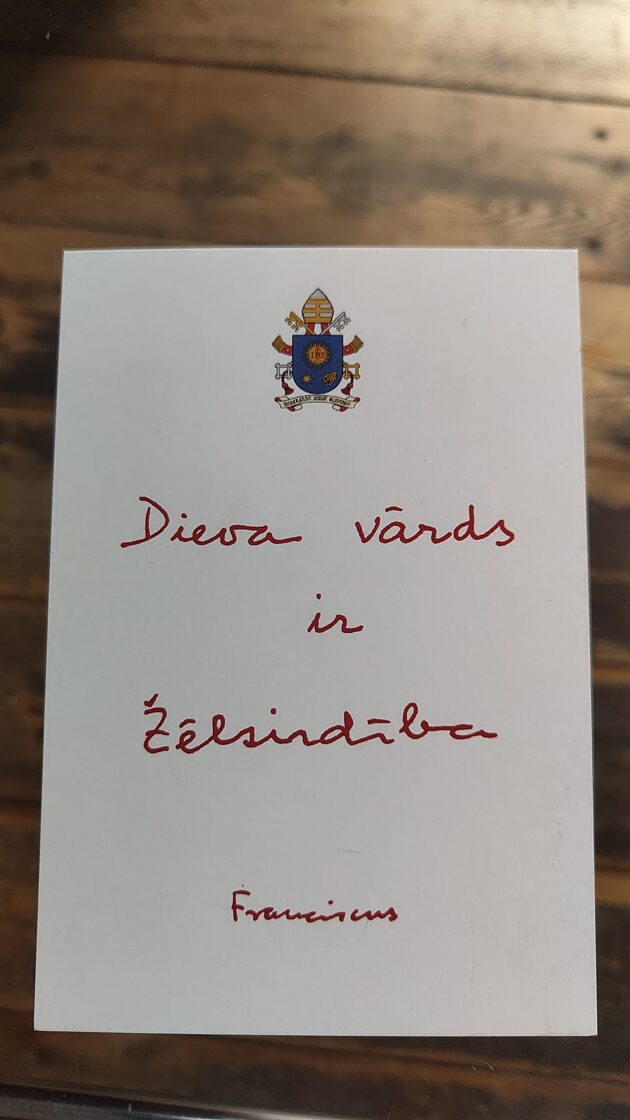 IHS
MISERANDO ATQUE ELIGENDO
Dieva vārds
ir
Žēlsirdība
Franciscus